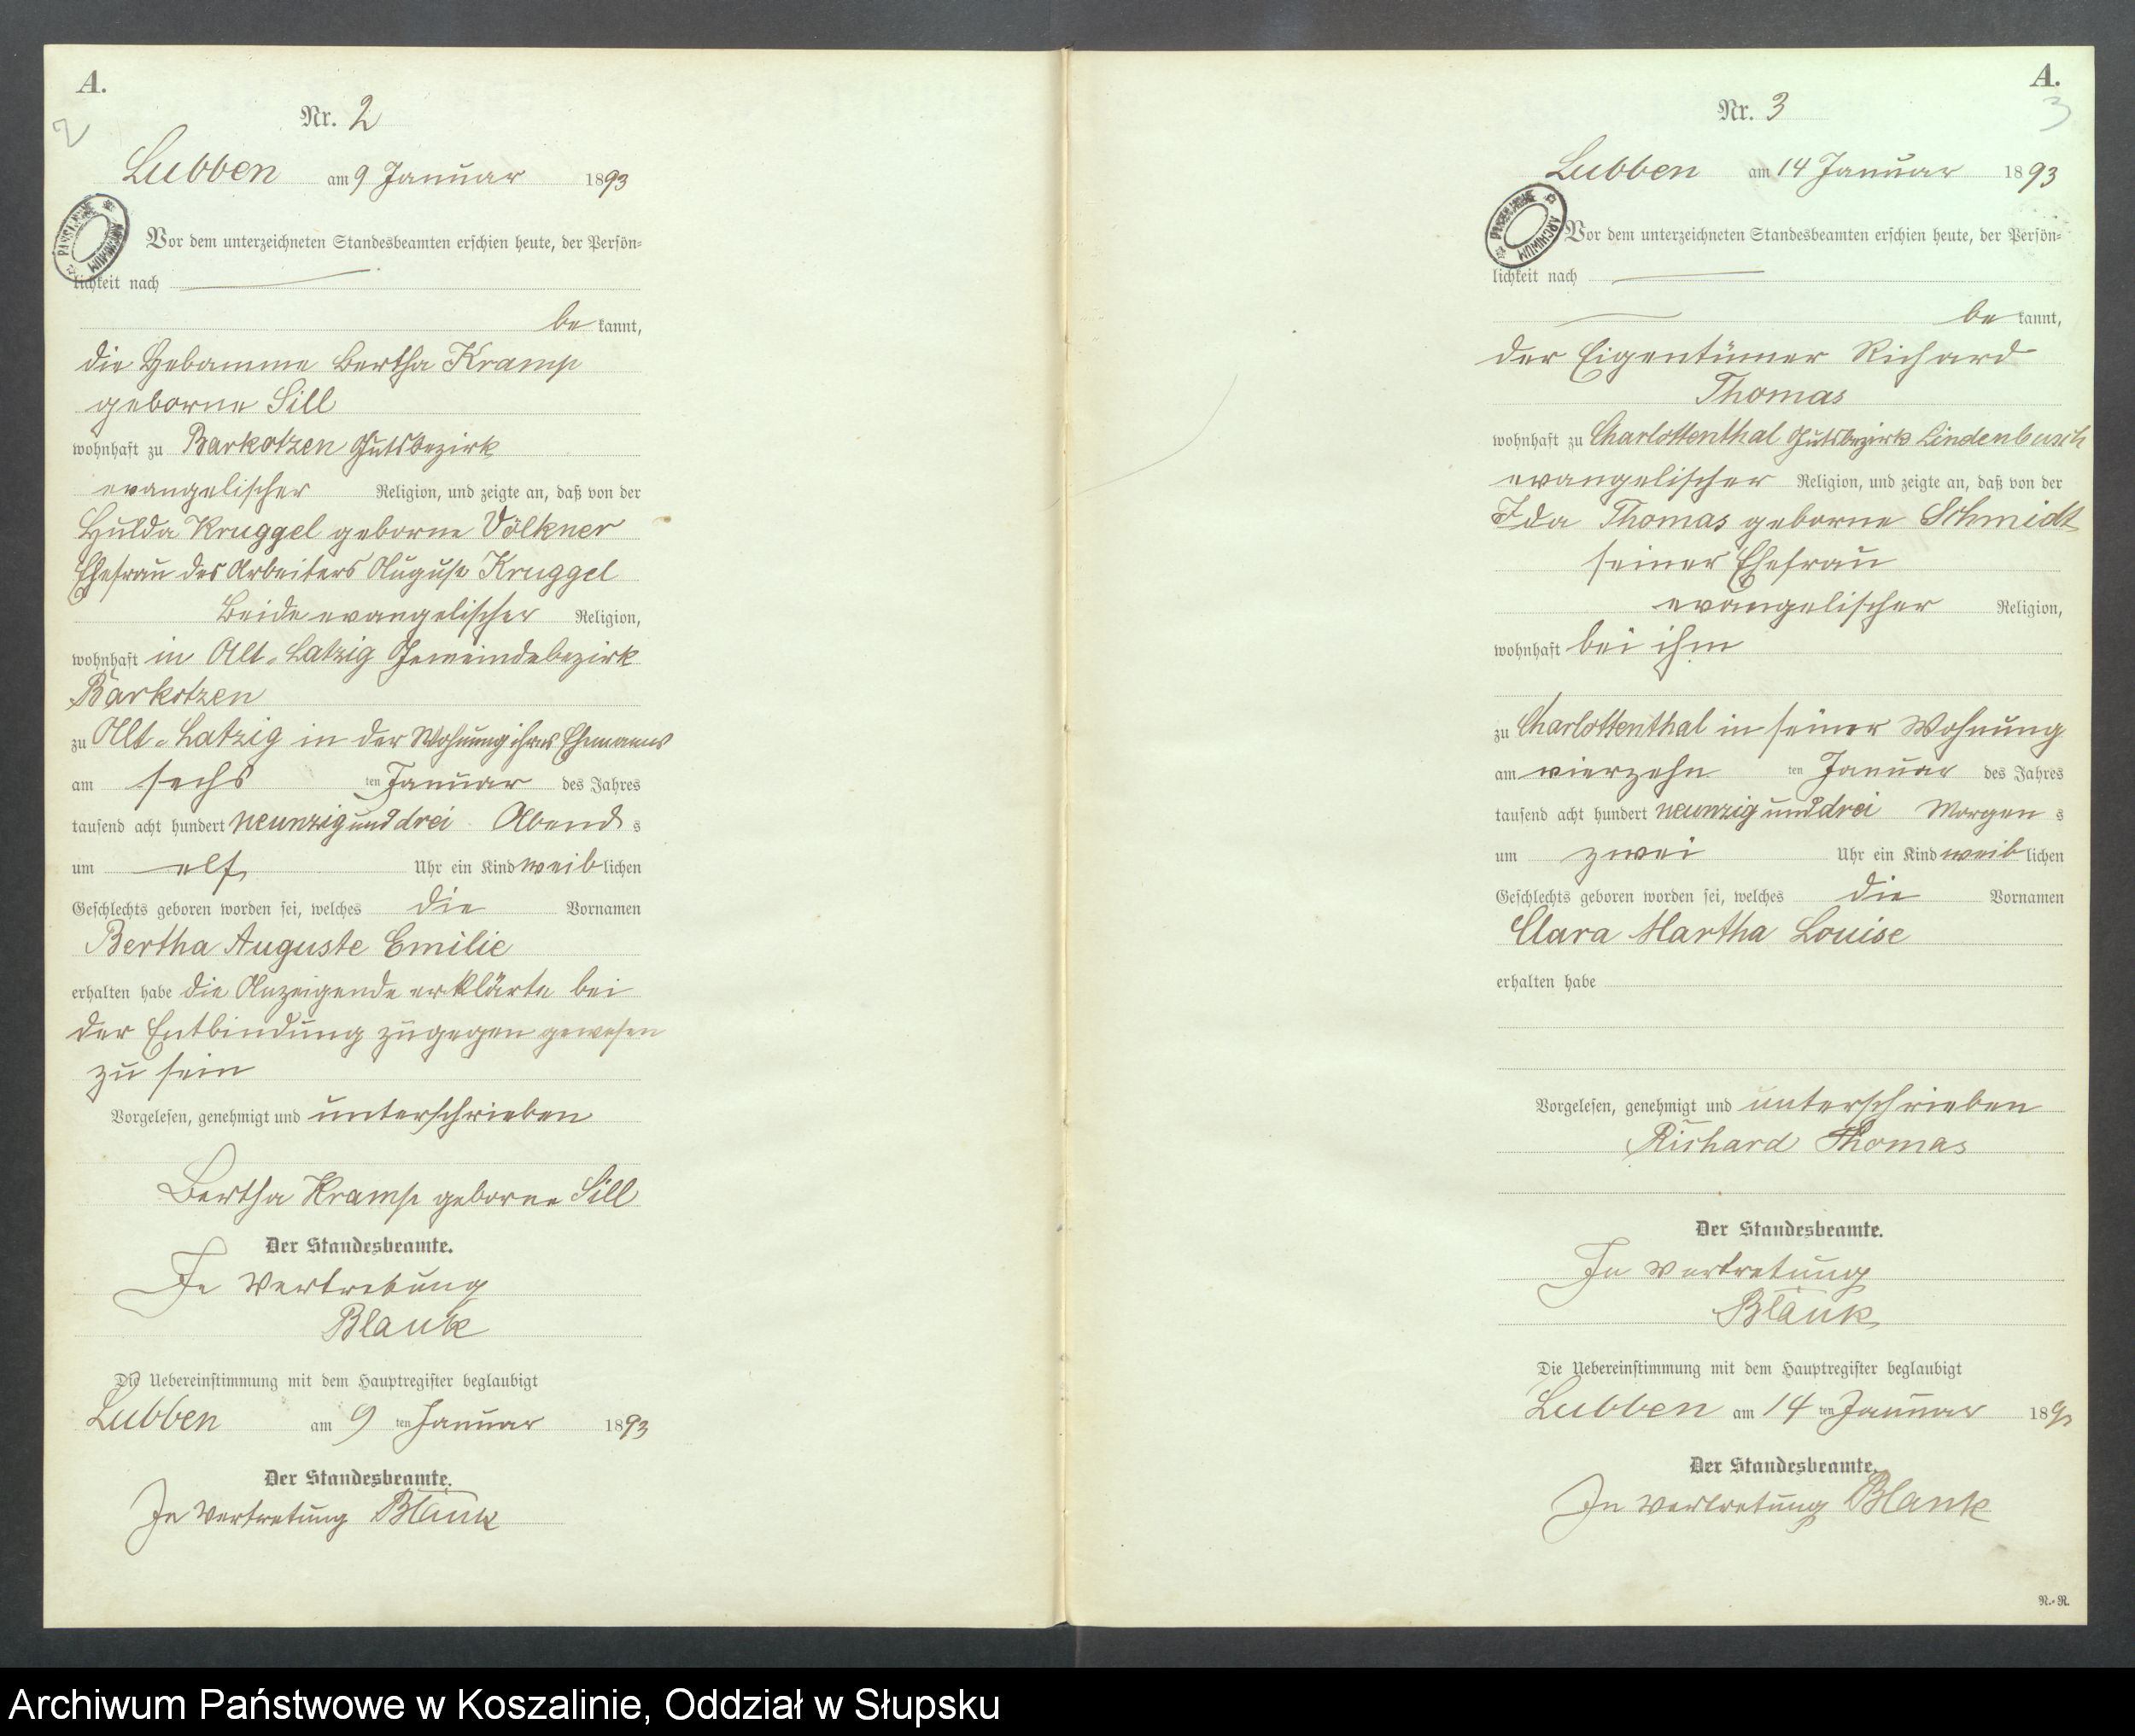 A.
2
Nr. 2
Lubben am 9 Januar 1893
Vor dem unterzeichneten Standesbeamten erschien heute, der Persön-
lichkeit nach
be kannt,
die Hebamme Bertha Kramp
geborne Sill
wohnhaft zu Barkotzen Gutsbezirk
evangelischer Religion, und zeigte an, daß von der
Hulda Kruggel geborne Völkner
Ehefrau des Arbeiters August Kruggel
Beide evangelischer Religion,
wohnhaft in Alt-Latzig Gemeindebezirk
Barkotzen
zu Alt-Latzig in der Wohnung ihres Ehemanns
am sechs ten Januar des Jahres
tausend acht hundert neunzig und drei Abend s
um elf Uhr ein Kind weib lichen
Geschlechts geboren worden sei, welches die Vornamen
Bertha Auguste Emilie
erhalten habe die Anzeigende erklärte bei
der Entbindung zugegen gewesen
zu sein
Vorgelesen, genehmigt und unterschrieben
Bertha Kramp geborne Sill
Der Standesbeamte.
In Vertretung
Blank
Die Uebereinstimmung mit dem Hauptregister beglaubigt
Lubben am 9 ten Januar 1893
Der Standesbeamte.
In Vertretung Blank
A.
3
Nr. 3
Lubben am 14 Januar 1893
ARCHIWUM PAŃSTWOWE
Vor dem unterzeichneten Standesbeamten erschien heute, der Persön-
lichkeit nach
be kannt,
der Eigentümer Richard
Thomas
wohnhaft zu Charlottenthal Gutsbezirk Lindenbusch
evangelischer Religion, und zeigte an, daß von der
Ida Thomas geborne Schmidt
seiner Ehefrau
evangelischer Religion,
wohnhaft bei ihm
zu Charlottenthal in seiner Wohnung
am vierzehn ten Januar des Jahres
tausend acht hundert neunzig und drei Morgen s
um zwei Uhr ein Kind weib lichen
Geschlechts geboren worden sei, welches die Vornamen
Clara Martha Louise
erhalten habe
Vorgelesen, genehmigt und unterschrieben
Richard Thomas
Der Standesbeamte.
In Vertretung
Blank
Die Uebereinstimmung mit dem Hauptregister beglaubigt
Lubben am 14 ten Januar 189
Der Standesbeamte.
In Vertretung Blank
N.-R.
Archiwum Państwowe w Koszalinie, Oddział w Słupsku